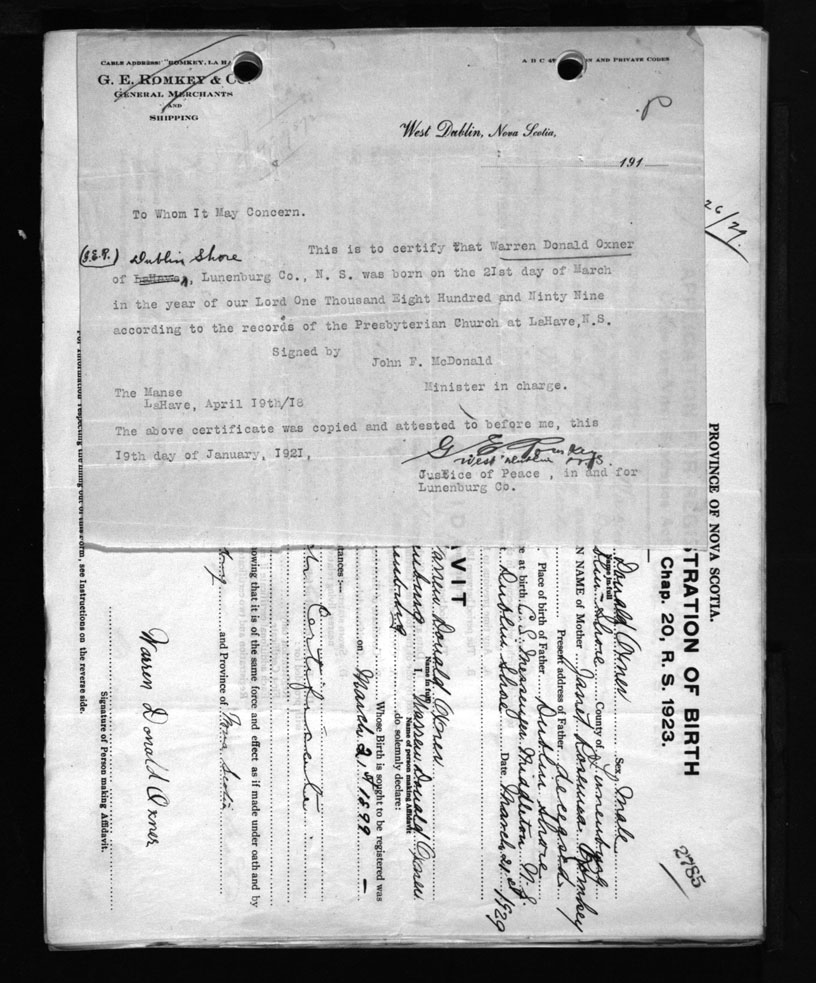 CABLE ADDRESS: "ROMKEY, LA HA
G. E. ROMKEY & CO.
GENERAL MERCHANTS
AND
SHIPPING
A B C 4 ON AND PRIVATE CODES
P
West Dublin, Nova Scotia,
191
26/29.
To Whom It May Concern.
(G.E.R.) Dublin Shore
This is to certify that Warren Donald Oxner
of LaHave, Lunenburg Co., N. S. was born on the 21st day of March
in the year of our Lord One Thousand Eight Hundred and Ninty Nine
according to the records of the Presbyterian Church at LaHave, N.S.
Signed by
John F. McDonald
Minister in charge.
The Manse
LaHave, April 19th/18
The above certificate was copied and attested to before me, this
19th day of January, 1921,
G E Romkey
West Dublin N.S.
Justice of Peace, in and for
Lunenburg Co.
PROVINCE OF NOVA SCOTIA.
TRATION OF BIRTH
Chap. 20, R. S. 1923.
2785
Donald Oxner Sex Male
Name in full
blin-Shore County of Lunenburg
N NAME of Mother Janet Romkey
Present address of Father deceased
Place of birth of Father Dublin Shore
e at birth C. S. Messenger Middleton N.S.
t. Dublin Shore Date March 21st 1929
VIT
Warren Donald Oxner
Name in full
enburg I, Warren Donald Oxner
Name of person making Affidavit
do solemnly declare:
Whose Birth is sought to be registered was
on March 21st 1899
tances:—
Certificate
nowing that it is of the same force and effect as if made under oath and by
and Province of Nova Scotia
Warren Donald Oxner
Signature of Person making Affidavit.
For information respecting the filling out of this form, see Instructions on the reverse side.